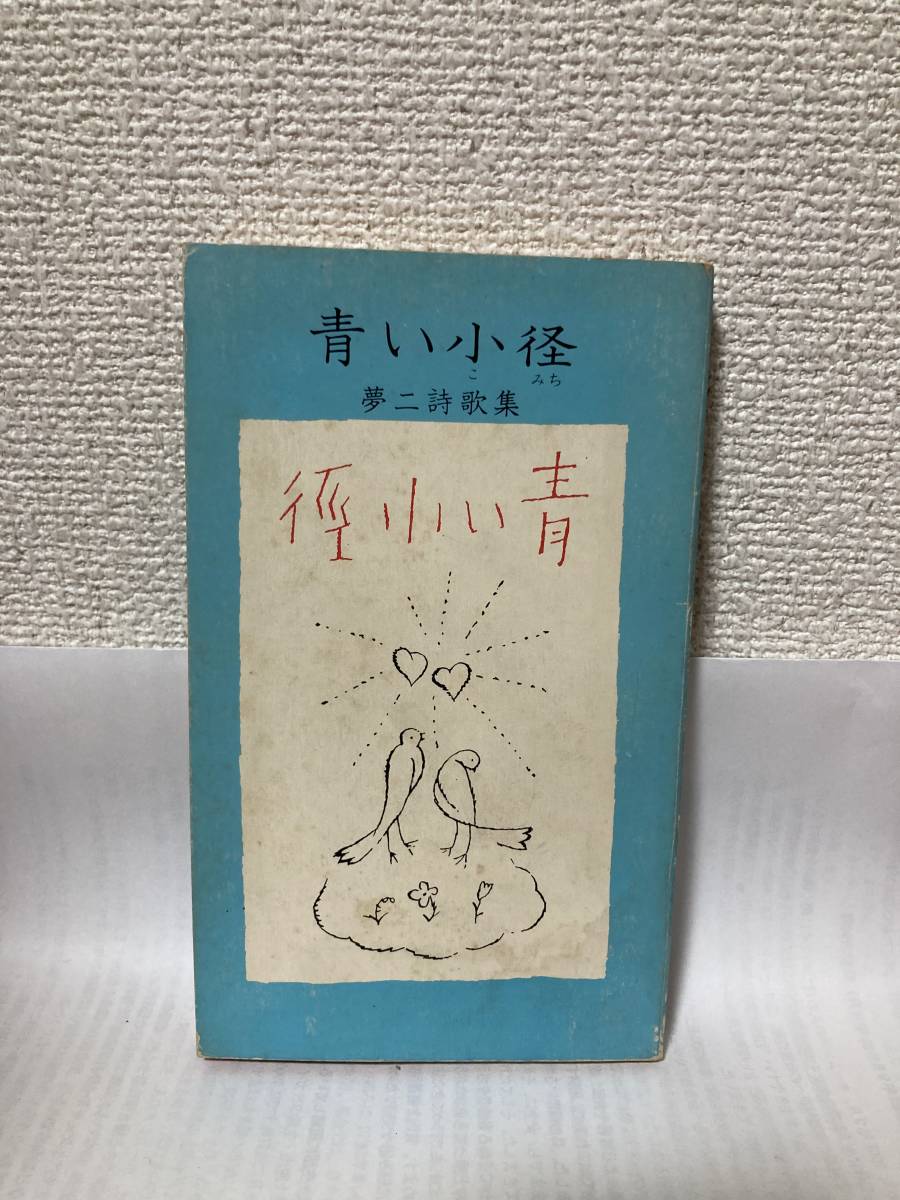 青い小径
こみち
夢二詩歌集
青い小徑